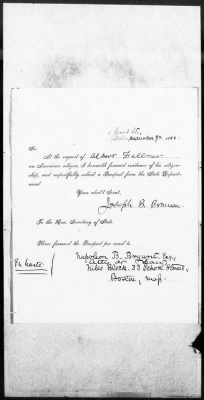 4 Court St.,
Boston, December 9th, 188
Sir
At the request of Albert Fellner
an American citizen, I herewith forward evidence of his citizen-
ship, and respectfully solicit a Passport from the State Depart-
ment.
Your obed't Servt,
Joseph B. Braman
To the Hon. Secretary of State.
Please forward the Passport per mail to
Napoleon B. Bryant, Esq.,
Atty at Law
Niles Block, 33 School Street,
Boston, Mass.